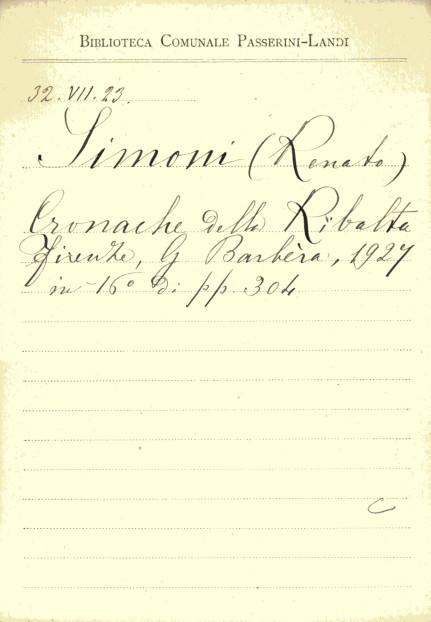 BIBLIOTECA COMUNALE PASSERINI-LANDI
32.VII.23.
Simoni (Renato)
Cronache della Ribalta
Firenze, G Barbèra, 1927
in-16° di pp. 304
C